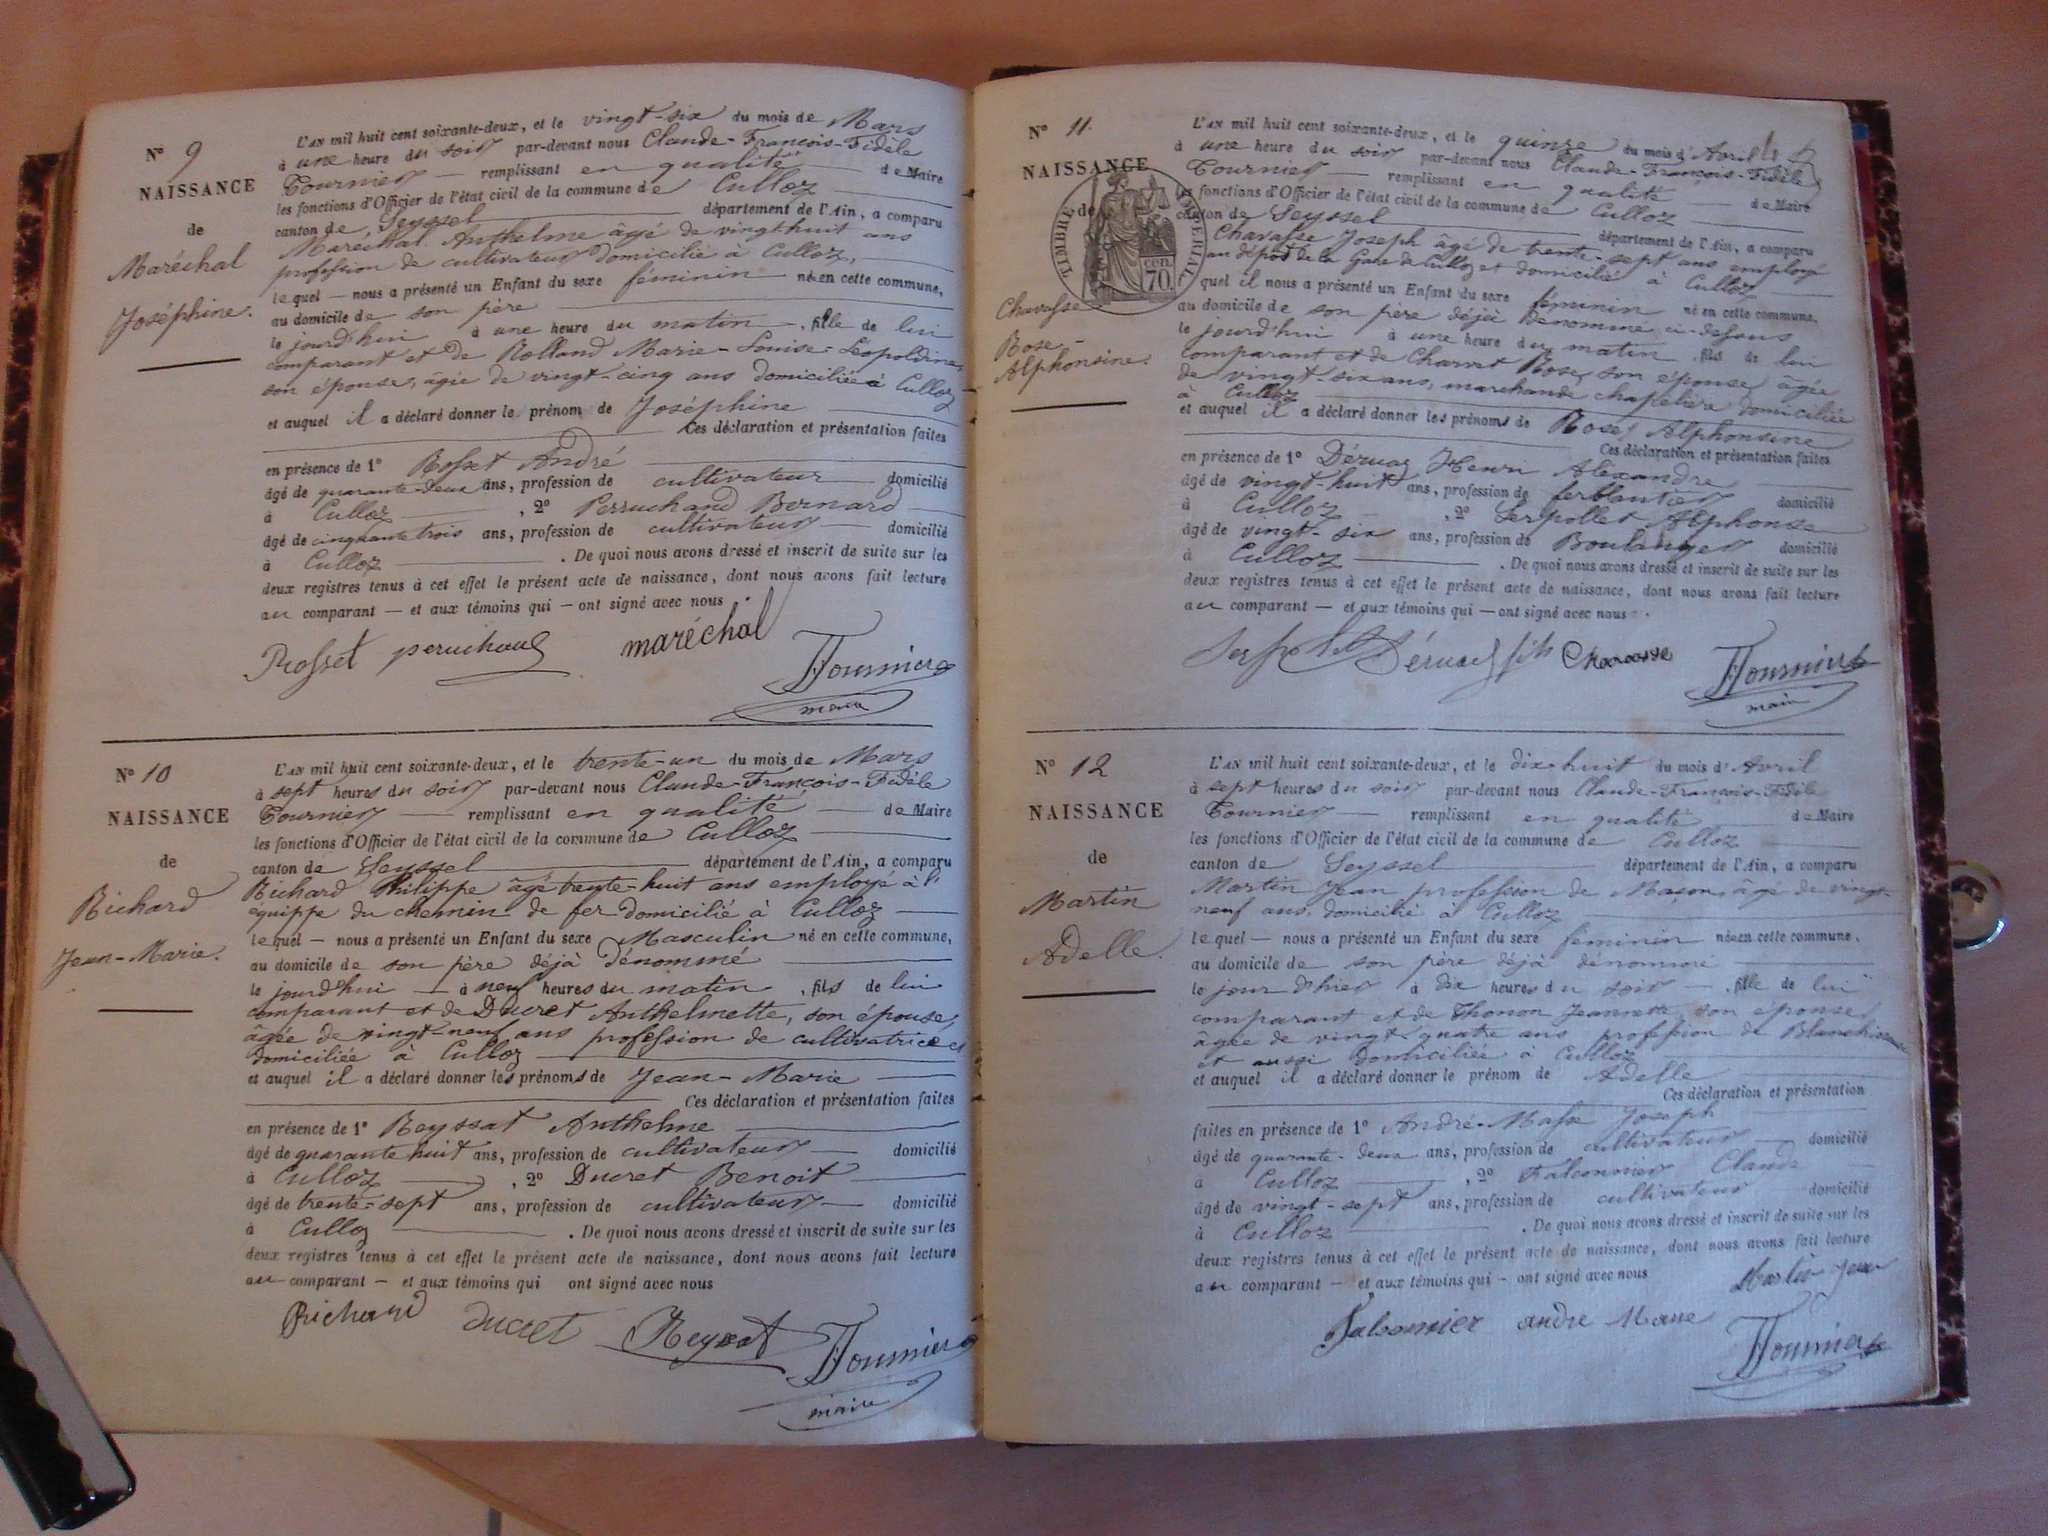 N° 9
NAISSANCE
de
Maréchal
Joséphine.
L'AN mil huit cent soixante-deux, et le vingt-six du mois de Mars
à une heure du soir par-devant nous Claude-François-Fidèle
Fournier — remplissant en qualité de Maire
les fonctions d'Officier de l'état civil de la commune de Culloz
canton de Seyssel département de l'Ain, a comparu
Maréchal Anthelme âgé de vingt huit ans
profession de cultivateur domicilié à Culloz,
lequel — nous a présenté un Enfant du sexe féminin né en cette commune,
au domicile de son père
le jourd'hui à une heure du matin, fille de lui
comparant et de Rolland Marie-Louise-Léopoldine,
son épouse, âgée de vingt-cinq ans domiciliée à Culloz
et auquel il a déclaré donner le prénom de Joséphine
Ces déclaration et présentation faites
en présence de 1° Rosset André
âgé de quarante-deux ans, profession de cultivateur domicilié
à Culloz, 2° Perruchand Bernard
âgé de cinquante trois ans, profession de cultivateur domicilié
à Culloz. De quoi nous avons dressé et inscrit de suite sur les
deux registres tenus à cet effet le présent acte de naissance, dont nous avons fait lecture
au comparant — et aux témoins qui — ont signé avec nous.
Rosset peruchand maréchal Fournier
maire
N° 10
NAISSANCE
de
Richard
Jean-Marie.
L'AN mil huit cent soixante-deux, et le trente-un du mois de Mars
à sept heures du soir par-devant nous Claude-François-Fidèle
Fournier — remplissant en qualité de Maire
les fonctions d'Officier de l'état civil de la commune de Culloz
canton de Seyssel département de l'Ain, a comparu
Richard Philippe âgé trente-huit ans employé à l'
equippe du chemin de fer domicilié à Culloz
lequel — nous a présenté un Enfant du sexe Masculin né en cette commune,
au domicile de son père déjà dénommé
le jourd'hui — à neuf heures du matin, fils de lui
comparant et de Ducret Anthelmette, son épouse,
âgée de vingt-neuf ans profession de cultivatrice et
domiciliée à Culloz
et auquel il a déclaré donner les prénoms de Jean-Marie
Ces déclaration et présentation faites
en présence de 1° Reyssat Anthelme
âgé de quarante huit ans, profession de cultivateur domicilié
à Culloz, 2° Ducret Benoit
âgé de trente-sept ans, profession de cultivateur domicilié
à Culloz. De quoi nous avons dressé et inscrit de suite sur les
deux registres tenus à cet effet le présent acte de naissance, dont nous avons fait lecture
au comparant — et aux témoins qui ont signé avec nous
Richard Ducret Reyssat Fournier
maire
N° 11.
NAISSANCE
de
TIMBRE IMPÉRIAL
70 cen.
Chavasse
Rose-
Alphonsine.
L'AN mil huit cent soixante-deux, et le quinze du mois d'Avril
à une heure du soir par-devant nous Claude-François-Fidèle
Fournier — remplissant en qualité de Maire
les fonctions d'Officier de l'état civil de la commune de Culloz
canton de Seyssel département de l'Ain, a comparu
Chavasse Joseph âgé de trente-sept ans employé
au dépôt de la Gare de Culloz et domicilié à Culloz
quel il nous a présenté un Enfant du sexe féminin né en cette commune,
au domicile de son père déjà dénommé ci-dessus
le jourd'hui à une heure du matin, fils de lui
comparant et de Charvet Rose, son épouse, âgée
de vingt-six ans, marchande chapelière domiciliée
à Culloz
et auquel il a déclaré donner les prénoms de Rose, Alphonsine
Ces déclaration et présentation faites
en présence de 1° Déruaz Henri Alexandre
âgé de vingt-huit ans, profession de ferblantier domicilié
à Culloz, 2° Serpollet Alphonse
âgé de vingt-six ans, profession de Boulanger domicilié
à Culloz. De quoi nous avons dressé et inscrit de suite sur les
deux registres tenus à cet effet le présent acte de naissance, dont nous avons fait lecture
au comparant — et aux témoins qui — ont signé avec nous.
Serpollet Déruaz fils Chavasse Fournier
maire
N° 12
NAISSANCE
de
Martin
Adelle.
L'AN mil huit cent soixante-deux, et le dix-huit du mois d'Avril
à sept heures du soir par-devant nous Claude-François-Fidèle
Fournier — remplissant en qualité de Maire
les fonctions d'Officier de l'état civil de la commune de Culloz
canton de Seyssel département de l'Ain, a comparu
Martin Jean profession de Maçon, âgé de vingt-
neuf ans, domicilié à Culloz
lequel — nous a présenté un Enfant du sexe féminin née en cette commune,
au domicile de son père déjà dénommé
le jour d'hier à dix heures du soir, fille de lui
comparant et de Thonon Jeannette, son épouse,
âgée de vingt quatre ans profession de Blanchisseuse
et aussi domiciliée à Culloz
et auquel il a déclaré donner le prénom de Adelle
Ces déclaration et présentation
faites en présence de 1° André-Masse Joseph
âgé de quarante-deux ans, profession de cultivateur domicilié
à Culloz, 2° Falconnier Claude
âgé de vingt-sept ans, profession de cultivateur domicilié
à Culloz. De quoi nous avons dressé et inscrit de suite sur les
deux registres tenus à cet effet le présent acte de naissance, dont nous avons fait lecture
au comparant — et aux témoins qui — ont signé avec nous
Martin Jean
Falconnier andre Masse Fournier